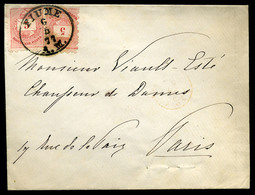 FIUME
6
5
A.M.
Monsieur Viault-Esté
Chausseur de Dames
17 Rue de la Paix Paris